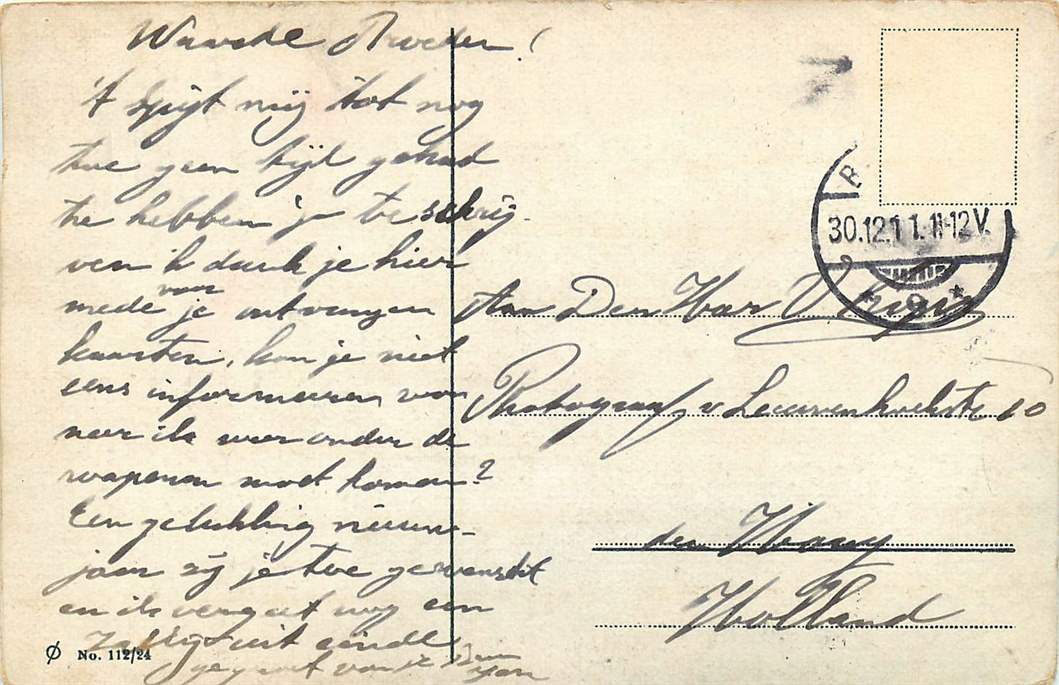 Waarde
't Spijt mij tot nog
toe geen tijd gehad
te hebben je te schrij-
ven ik dank je hier
mede van je ontvangen
kaarten, kon je niet
eens informeeren wan
neer ik weer onder de
wapenen moet komen?
Een gelukkig nieuw-
jaar zij je toe gewenscht
en ik
uit einde
gegroet van je
No. 112/24
30.12.11. 11-12 V.
Aan Den Heer
Photograaf v Leeuwenhoekstr 10
den Haag
Holland